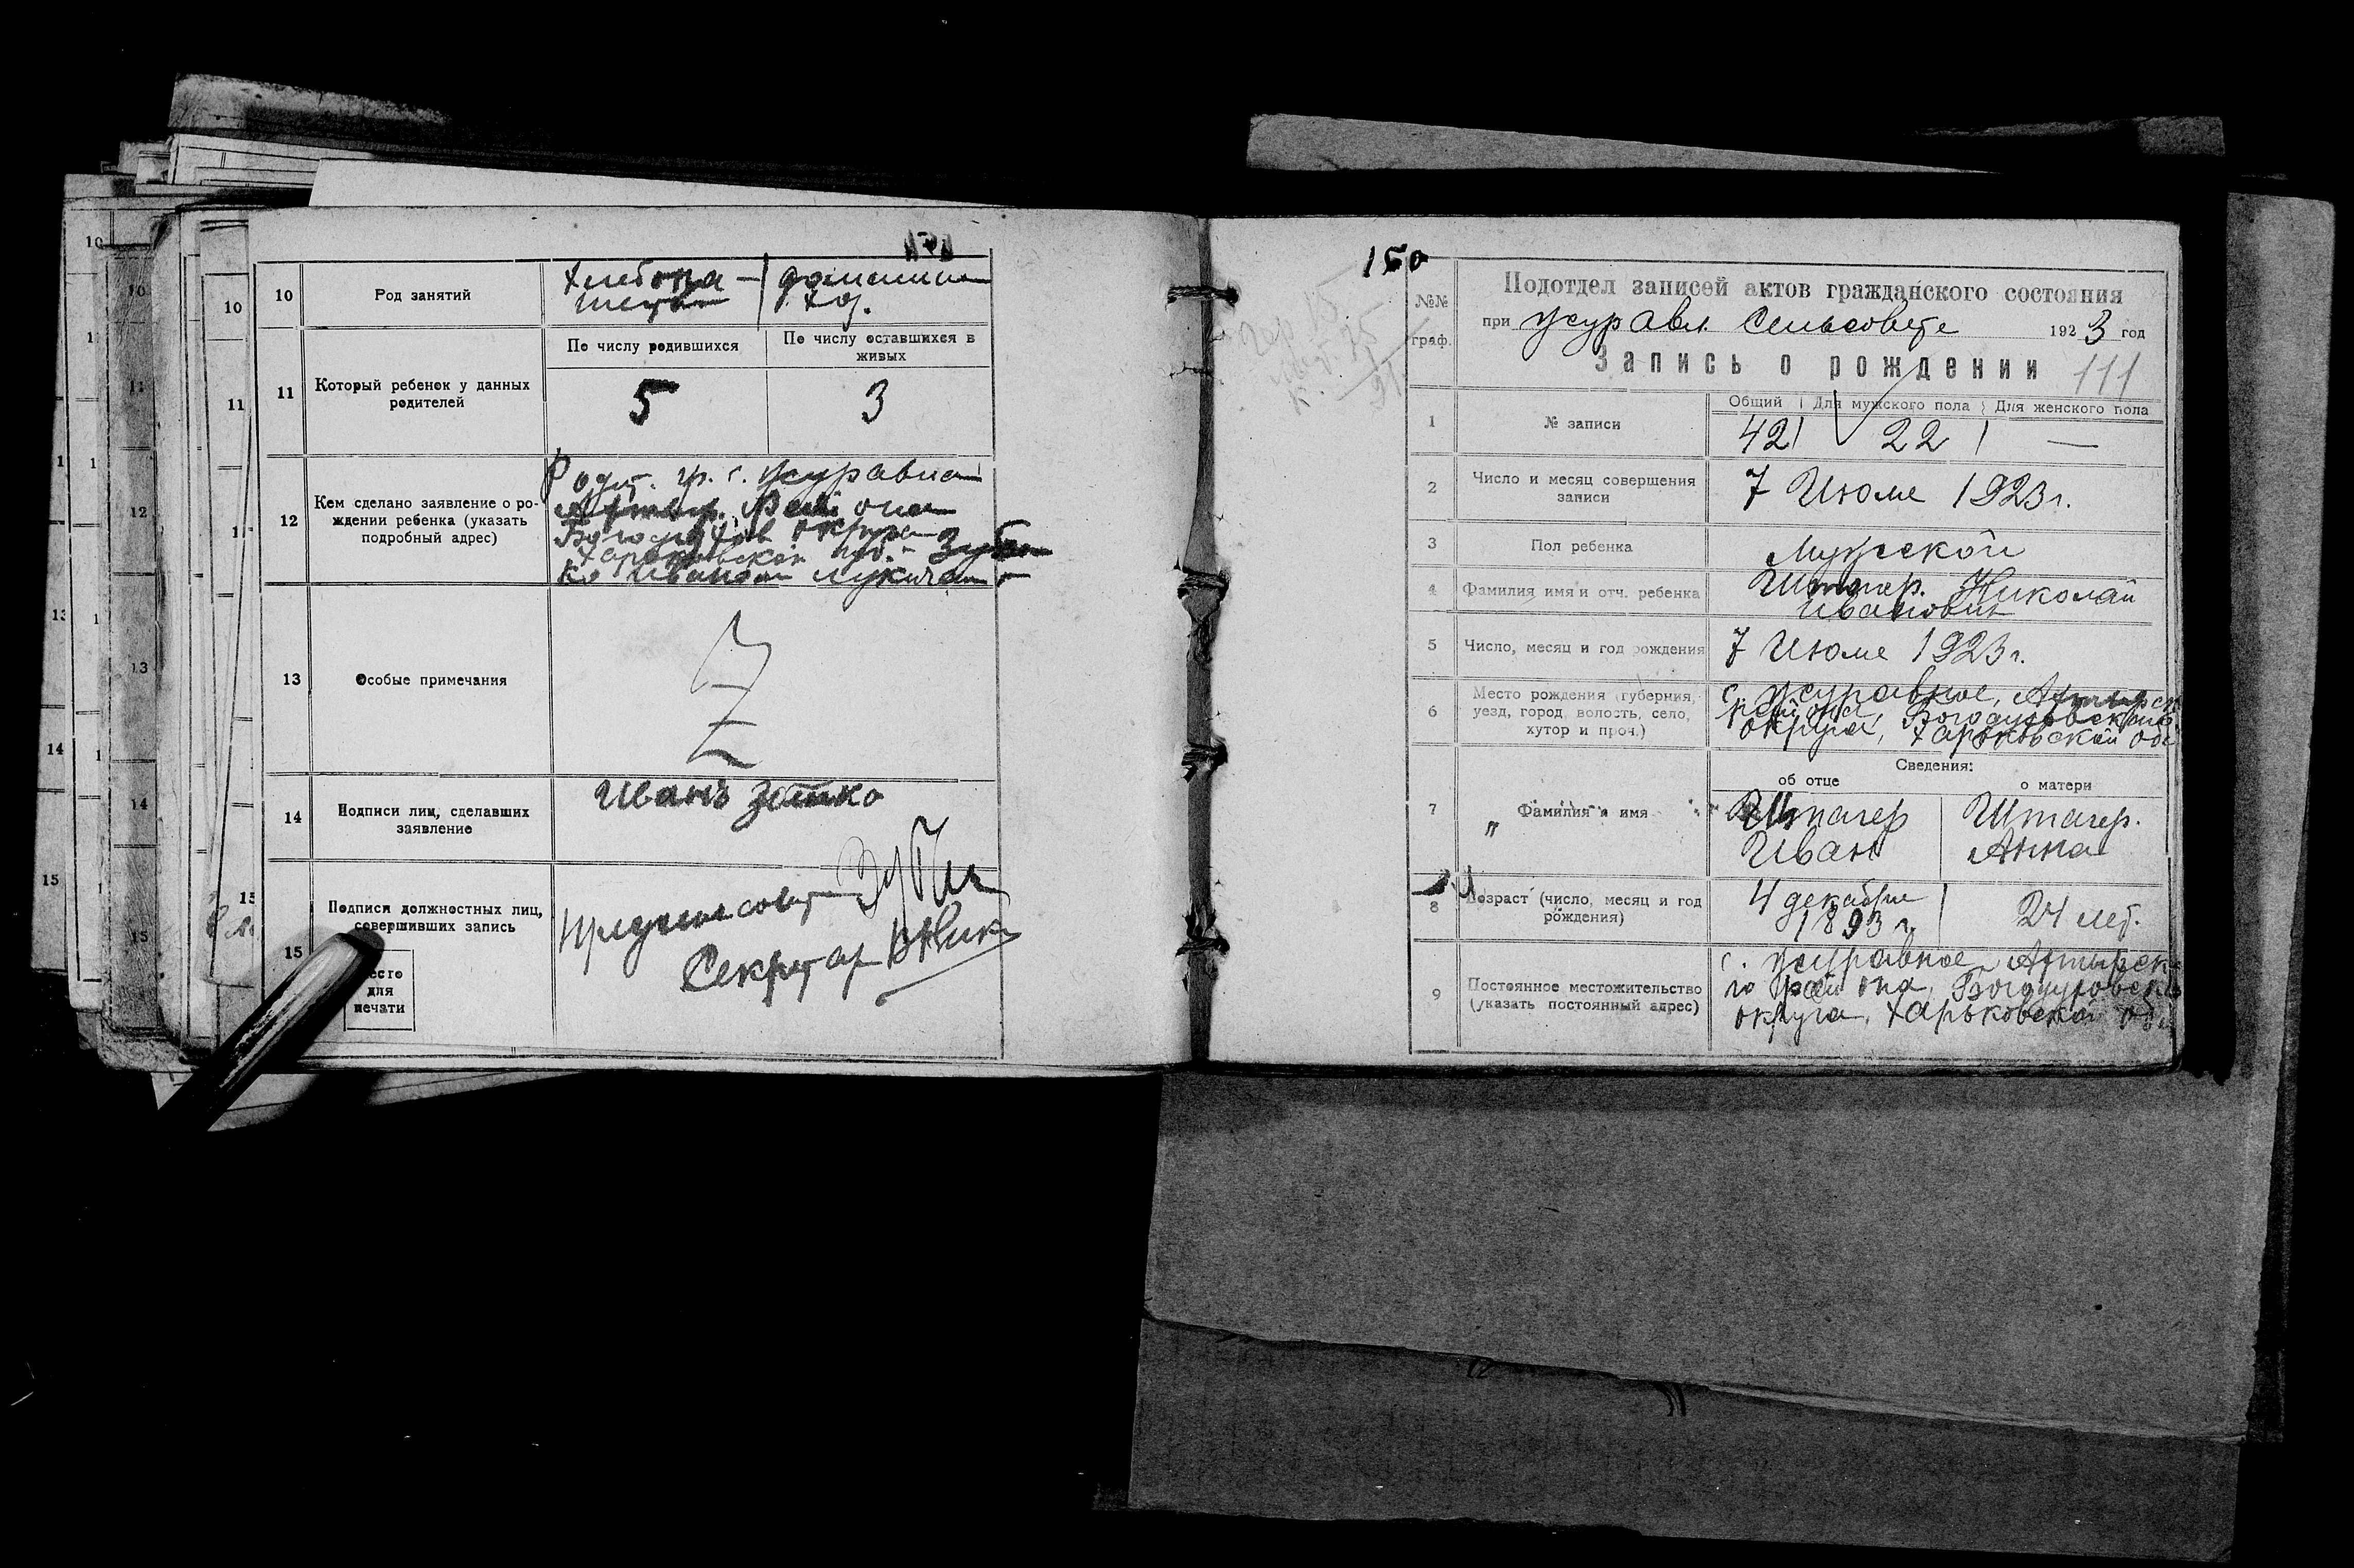 10
Род занятий
хлебопа- домашн.
шец хоз.
11
Который ребенок у данных
родителей
По числу родившихся
По числу оставшихся в
живых
5
3
12
Кем сделано заявление о ро-
ждении ребенка (указать
подробный адрес)
Родит. гр. с. Журавна
Ахтыр. Района
Богодухов округа
Харьковской губ. - Зубен
ко Иваном Лукичем
13
Особые примечания
Z
14
Подписи лиц, сделавших
заявление
Иванъ
15
Подписи должностных лиц,
совершивших запись
место
для
печати
Секретар
150
№№
граф.
Подотдел записей актов гражданского состояния
при Журавл. Сельсовете 1923 год
Запись о рождении 111
1
№ записи
Общий Для мужского пола Для женского пола
42 22 —
2
Число и месяц совершения
записи
7 Июля 1923 г.
3
Пол ребенка
Мужской
4
Фамилия имя и отч. ребенка
Штагер. Николай
Иванович
5
Число, месяц и год рождения
7 Июля 1923 г.
6
Место рождения (губерния,
уезд, город, волость, село,
хутор и проч.)
с. Журавное, Ахтырск
района, Богодуховского
округа, Харьковской
7
Фамилия и имя
Сведения:
об отце
о матери
Штагер
Иван
Штагер.
Анна
8
Возраст (число, месяц и год
рождения)
4 декабря
1893 г.
24 лет.
9
Постоянное местожительство
(указать постоянный адрес)
с. Журавное Ахтырск
го района, Богодуховск
округа, Харьковской